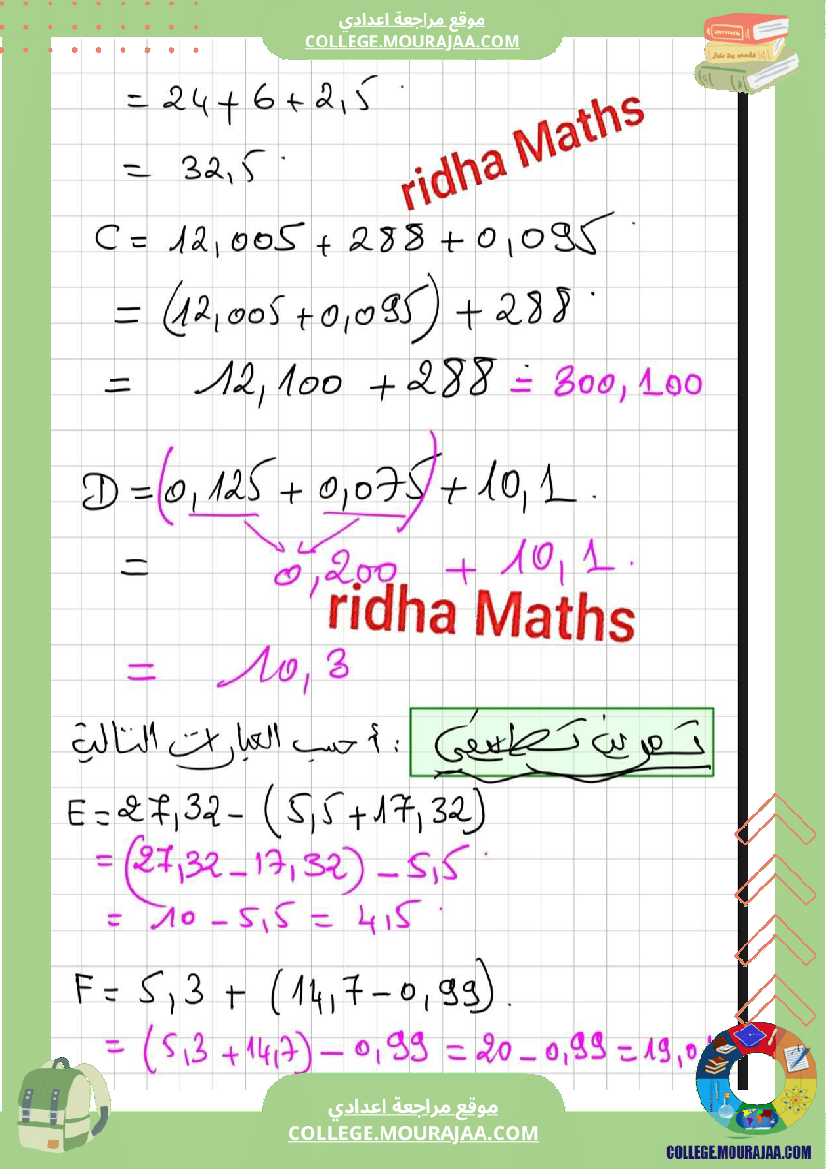 موقع مراجعة اعدادي
COLLEGE.MOURAJAA.COM
= 24 + 6 + 2,5
= 32,5
ridha Maths
C = 12,005 + 288 + 0,095
= (12,005 + 0,095) + 288
= 12,100 + 288 = 300,100
D = (0,125 + 0,075) + 10,1
= 0,200 + 10,1
ridha Maths
= 10,3
تمرين تطبيقي : أحسب العبارات التالية
E = 27,32 - (5,5 + 17,32)
= (27,32 - 17,32) - 5,5
= 10 - 5,5 = 4,5
F = 5,3 + (14,7 - 0,99)
= (5,3 + 14,7) - 0,99 = 20 - 0,99 = 19,0
موقع مراجعة اعدادي
COLLEGE.MOURAJAA.COM
COLLEGE.MOURAJAA.COM